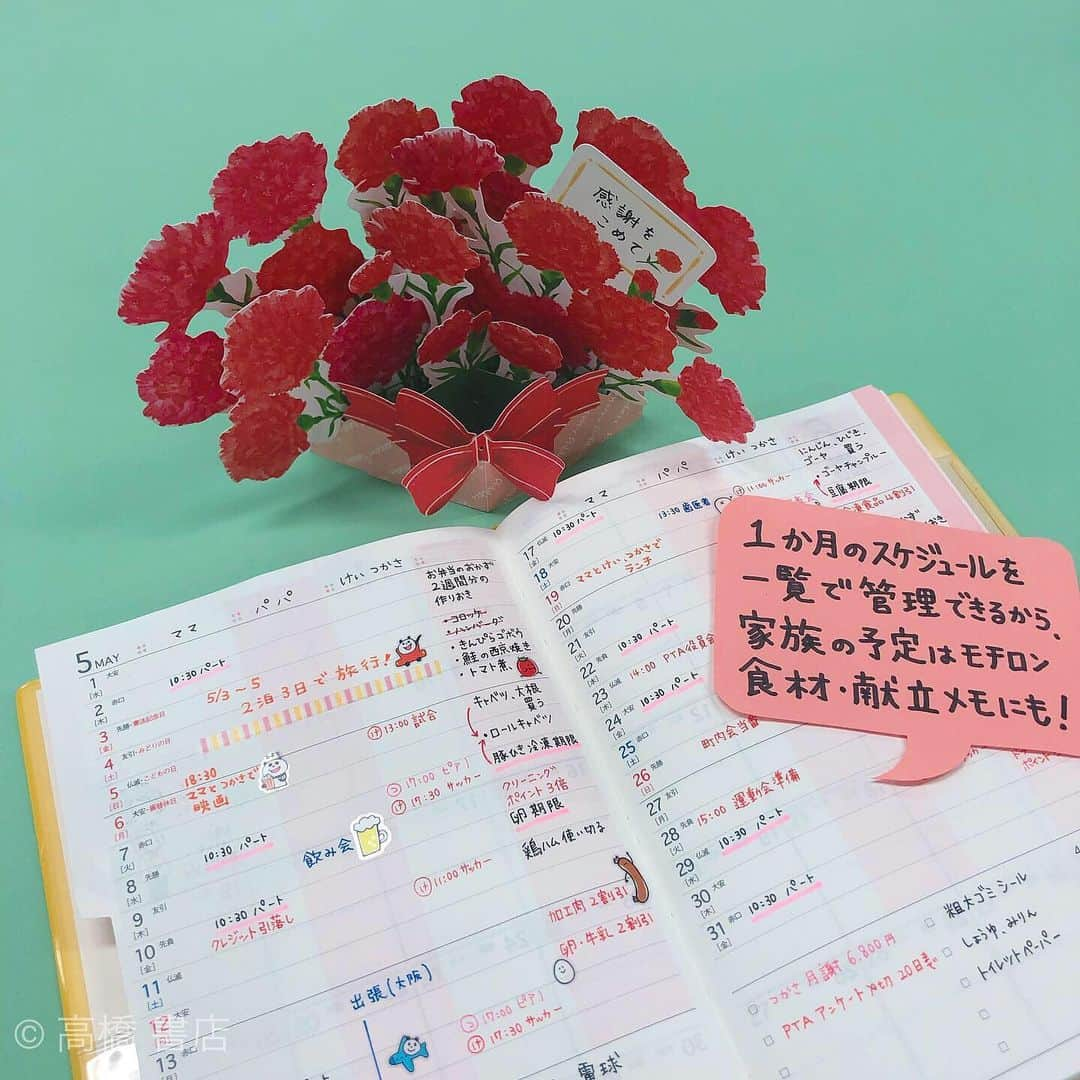 感謝を
こめて
1か月のスケジュールを
一覧で管理できるから、
家族の予定はモチロン
食材・献立メモにも！
ママ
パパ
けい つかさ
5 MAY
1 [水] 大安
10:30 パート
2 [木] 赤口
3 [金] 先勝・憲法記念日
5/3〜5
2泊3日で旅行！
4 [土] 友引・みどりの日
5 [日] 先負・こどもの日
け 13:00 試合
6 [月] 仏滅・振替休日
18:30
ママとつかさで
映画
7 [火]
つ 17:00 ピアノ
け 17:30 サッカー
8 [水] 先勝
10:30 パート
9 [木] 友引
飲み会
10 [金] 先負
け 11:00 サッカー
11 [土] 仏滅
10:30 パート
クレジット引落し
12 [日]
13 [月]
出張(大阪)
つ 17:00 ピアノ
け 17:30 サッカー
お弁当のおかず
2週間分の
作りおき
・コロッケ
・ハンバーグ
・きんぴらゴボウ
・鮭の西京焼き
・トマト煮
キャベツ、大根
買う
・ロールキャベツ
豚ひき冷凍期限
クリーニング
ポイント3倍
卵期限
鶏ハム使い切る
加工肉2割引
卵・牛乳2割引
電球
ママ
パパ
けい つかさ
17 [金] 仏滅
10:30 パート
13:30 歯医者
け 11:00 サッカー
18 [土] 大安
19 [日] 赤口
ママとけいつかさで
ランチ
20 [月] 先勝
21 [火] 友引
22 [水] 先負
10:30 パート
23 [木] 仏滅
14:00 PTA役員会
24 [金] 大安
10:30 パート
25 [土] 赤口
26 [日] 先勝
町内会当番
27 [月] 友引
28 [火] 先負
15:00 運動会準備
29 [水] 仏滅
10:30 パート
30 [木] 大安
31 [金] 赤口
10:30 パート
にんじん、ひじき、
ゴーヤ 買う
・ゴーヤチャンプルー
豆腐期限
冷凍食品4割引
つかさ 月謝 6,800円
PTA アンケート〆切 20日まで
粗大ゴミシール
しょうゆ、みりん
トイレットペーパー
© 高橋書店